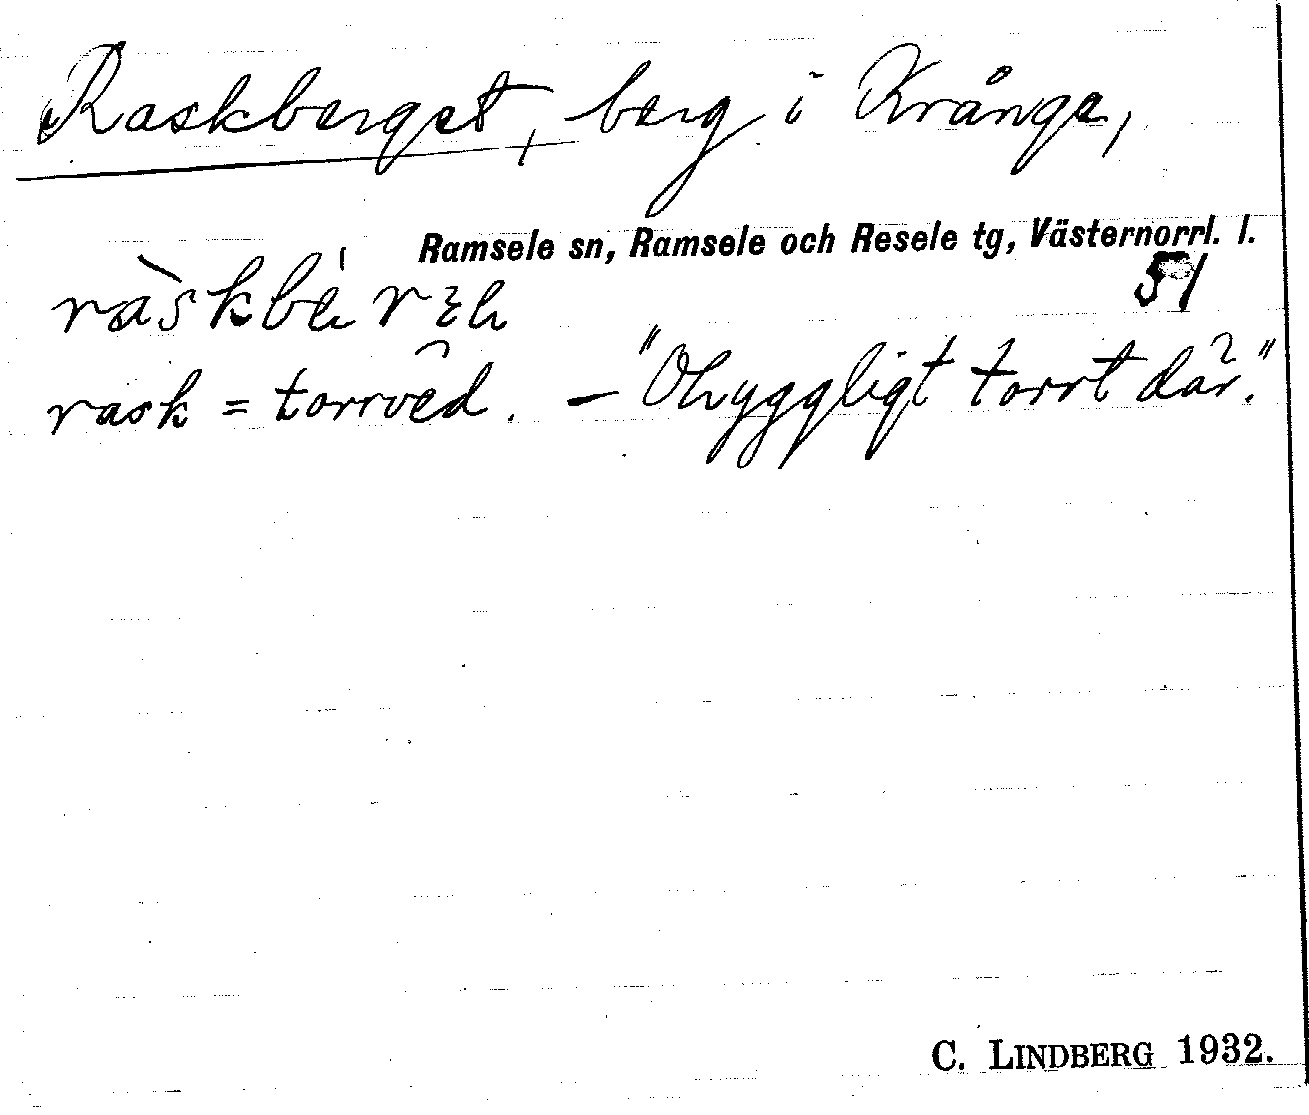 Raskberget, berg i Krånge,
Ramsele sn, Ramsele och Resele tg, Västernorrl. l.
51
rask = torrved. – "Ohyggligt torrt där."
C. LINDBERG 1932.